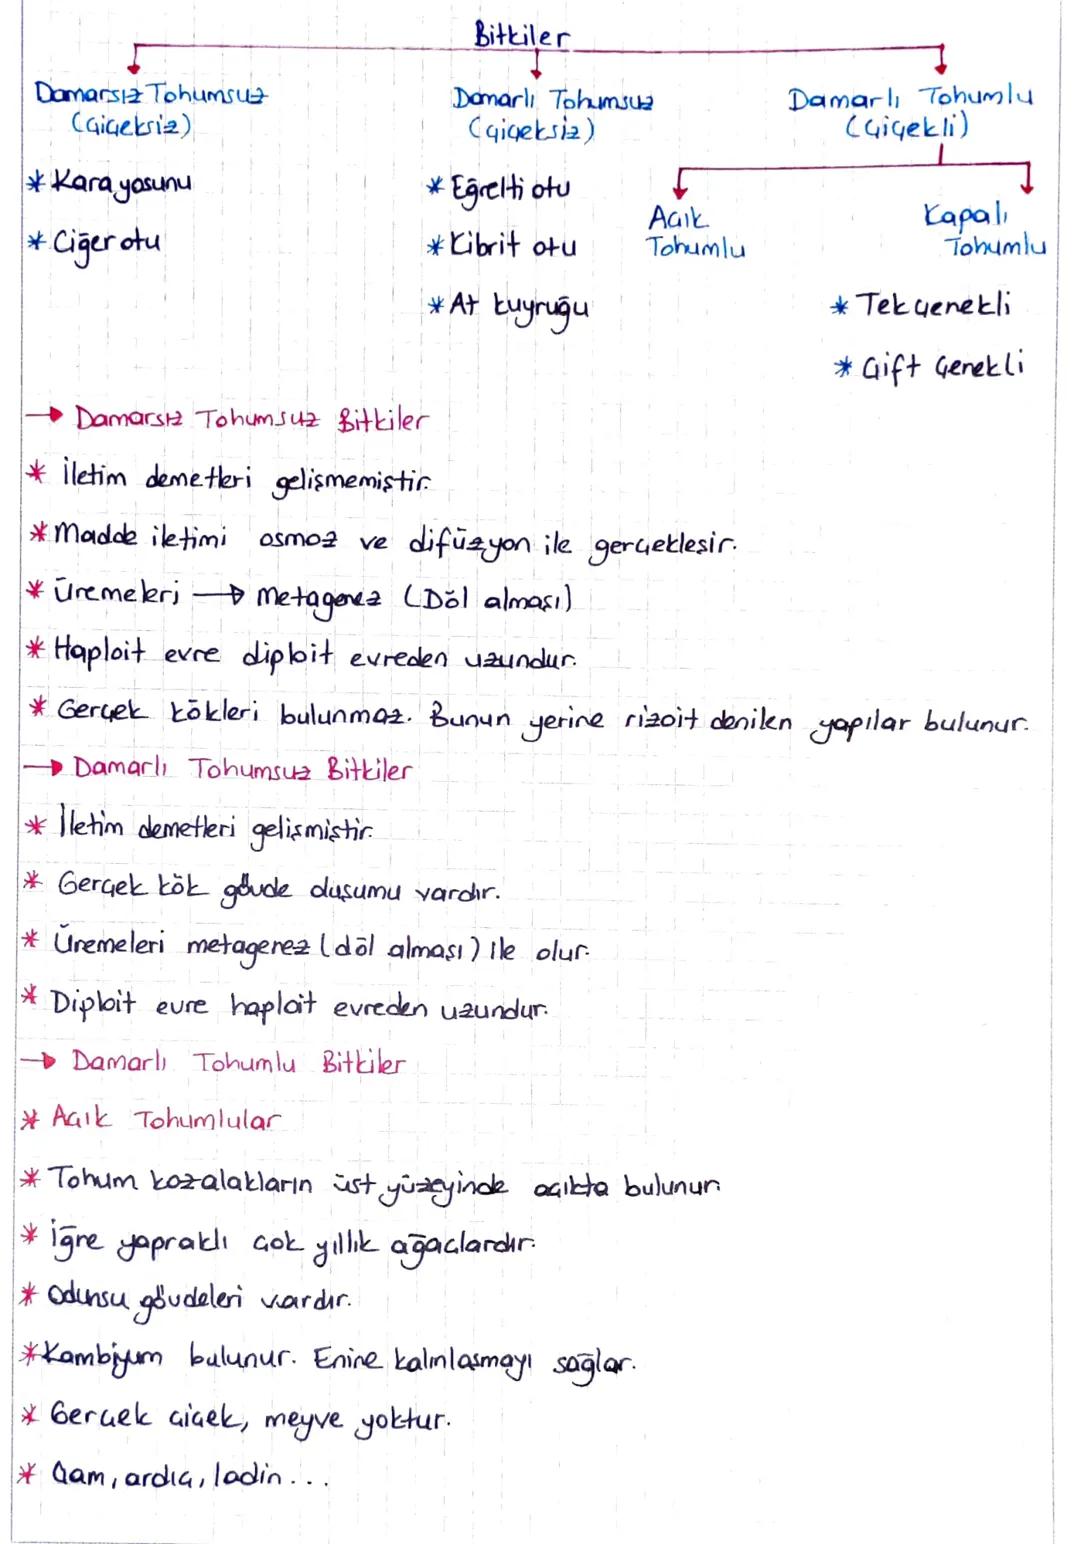 Bitkiler
Damarsız Tohumsuz
(Çiçeksiz)
* Kara yosunu
* Ciğer otu
Damarlı Tohumsuz
(Çiçeksiz)
* Eğrelti otu
* Kibrit otu
* At kuyruğu
Damarlı Tohumlu
(Çiçekli)
Açık
Tohumlu
Kapalı
Tohumlu
* Tek çenekli
* Çift Çenekli
→ Damarsız Tohumsuz Bitkiler
* İletim demetleri gelişmemiştir.
* Madde iletimi osmoz ve difüzyon ile gerçekleşir.
* Üremeleri → Metagenez (Döl alması)
* Haploit evre diploit evreden uzundur.
* Gerçek kökleri bulunmaz. Bunun yerine rizoit denilen yapılar bulunur.
→ Damarlı Tohumsuz Bitkiler
* İletim demetleri gelişmiştir.
* Gerçek kök gövde duşumu vardır.
* Üremeleri metagenez (döl alması) ile olur.
* Diploit evre haploit evreden uzundur.
→ Damarlı Tohumlu Bitkiler
* Açık Tohumlular
* Tohum kozalakların üst yüzeyinde açıkta bulunur.
* İğne yapraklı çok yıllık ağaçlardır.
* Odunsu gövdeleri vardır.
* Kambiyum bulunur. Enine kalınlaşmayı sağlar.
* Gerçek çiçek, meyve yoktur.
* Çam, ardıç, ladin...